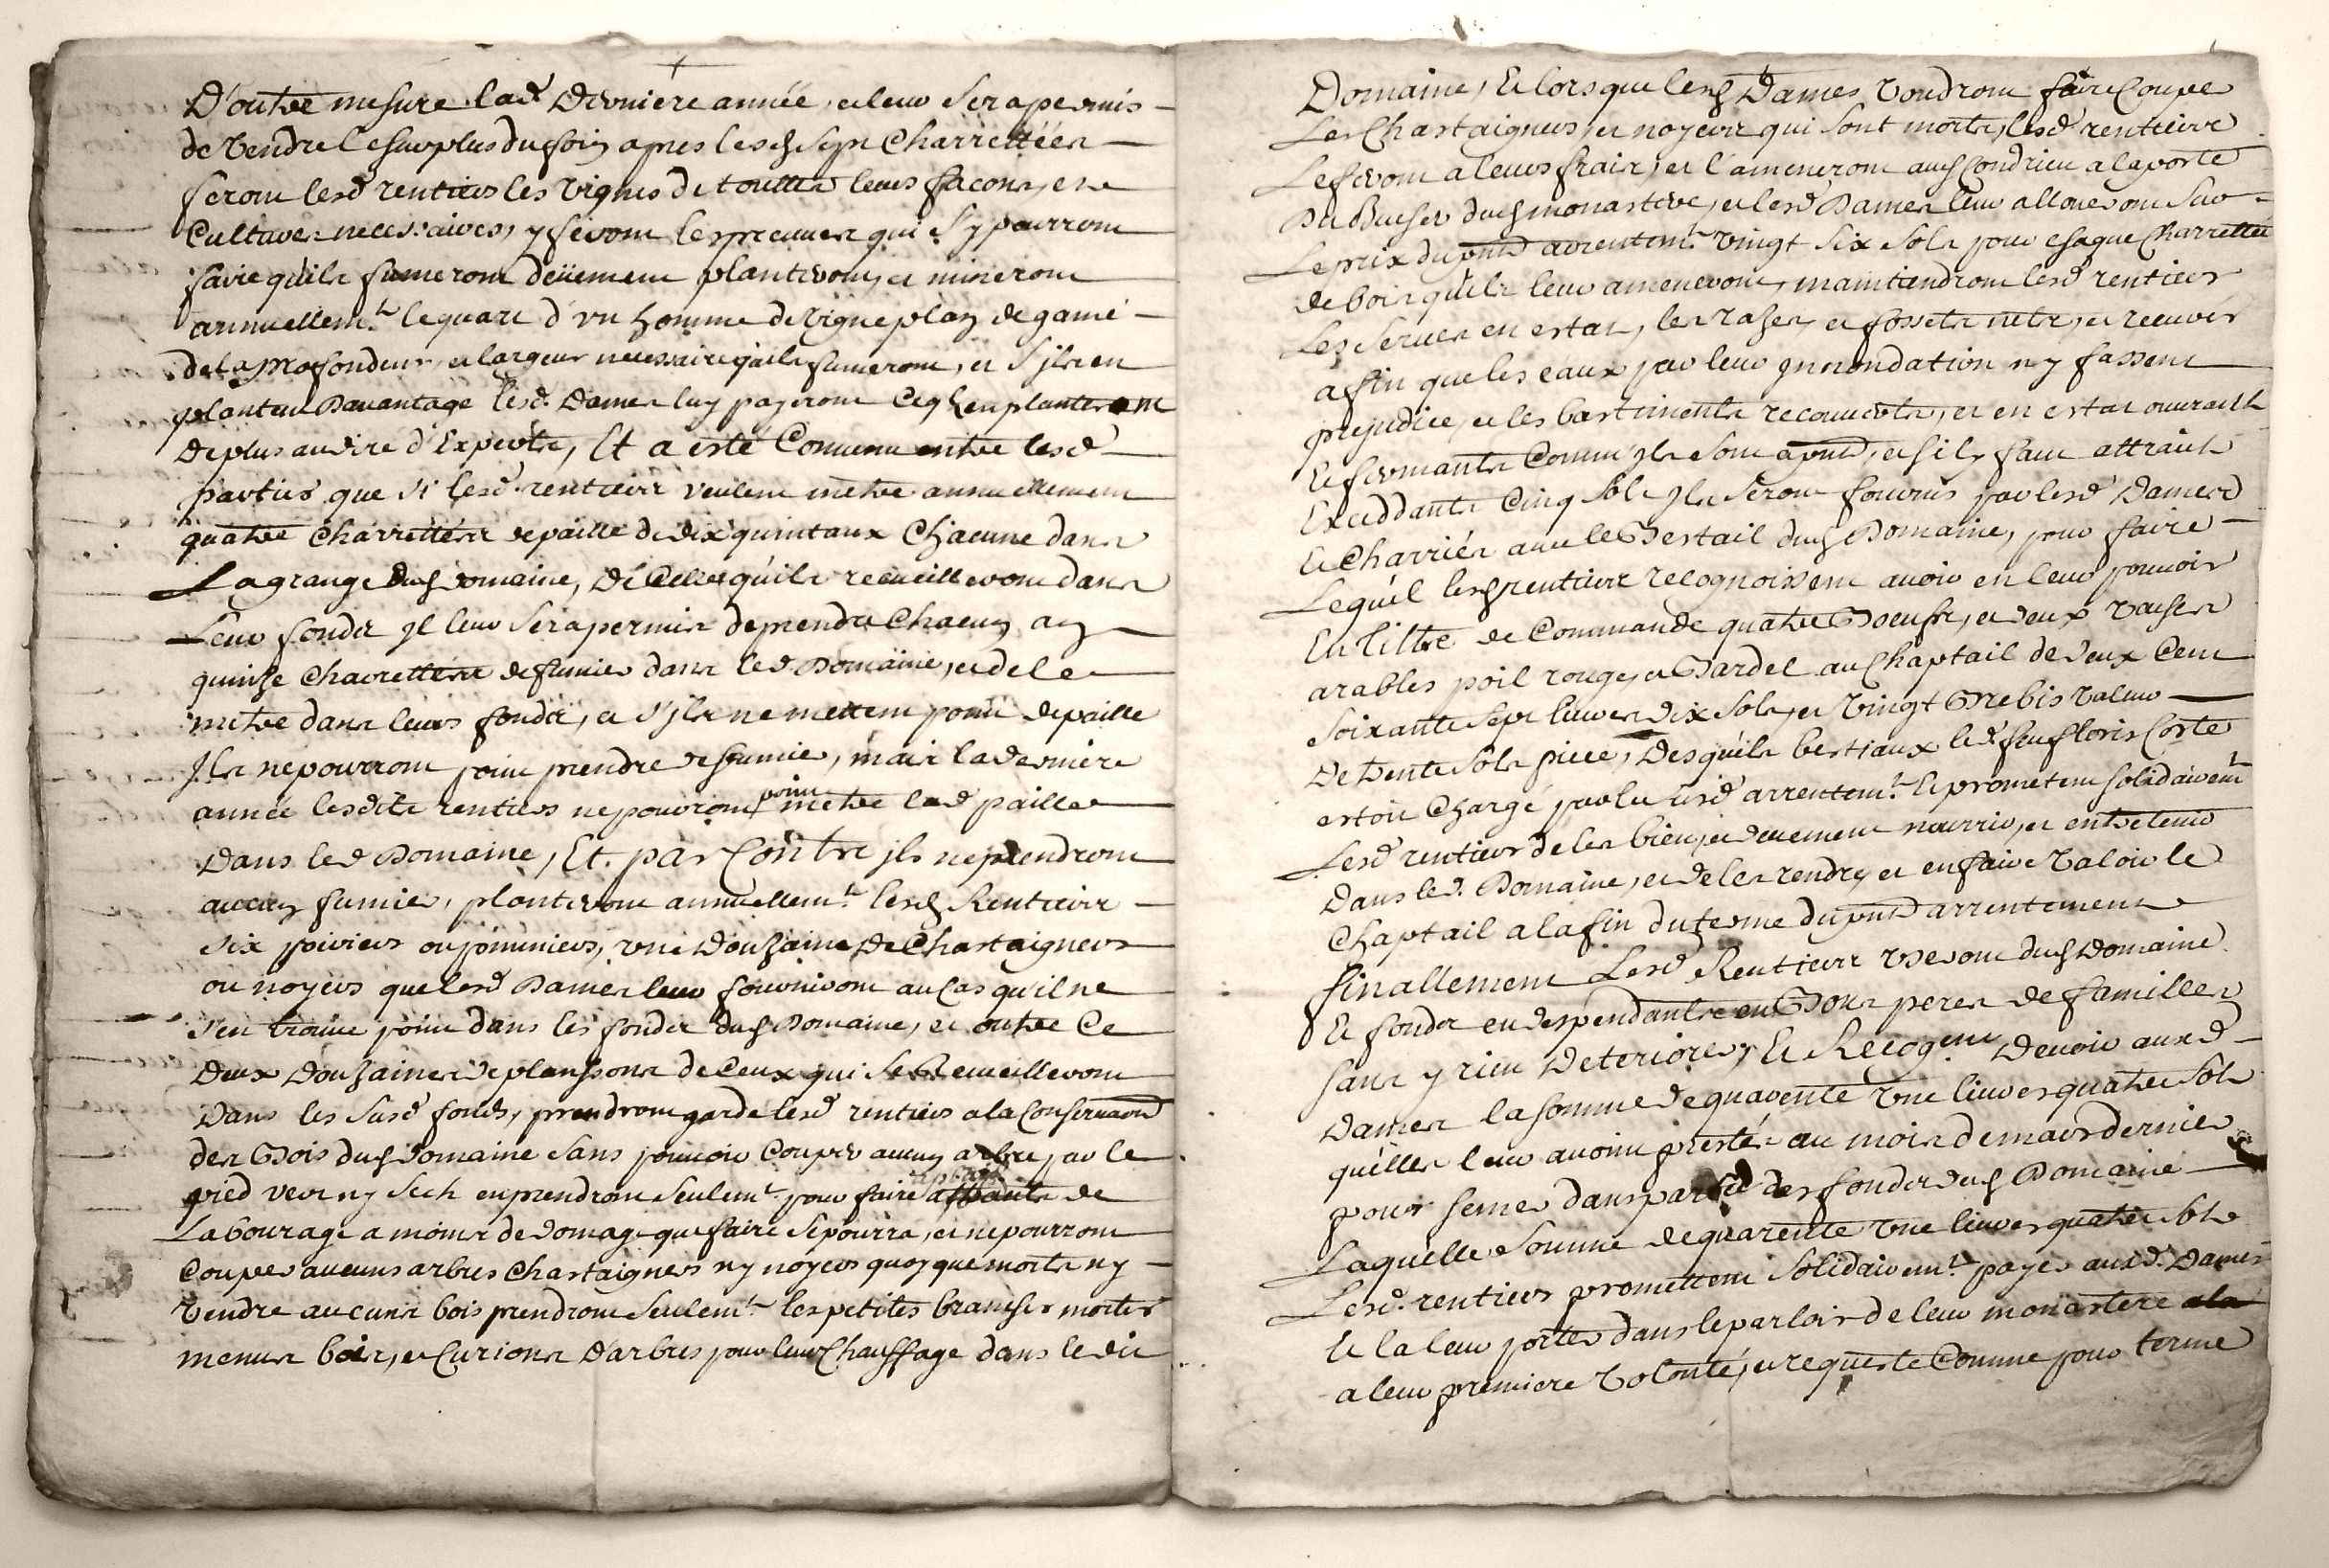 D'outre mesure lad. Derniere année, et leur sera permis
de vendre le surplus du foin apres lesd. sept Charrettées
feront lesd. rentiers les vignes de touttes leurs facons, et
Cultures necessaires, y feront les preuves qui s'y pourront
faire qu'ils fumeront deüement planteront, et mineront
annuellemt. le quart d'vn homme de vigne plan de gamé
de la proffondeur, et largeur necessaire qu'ils fumeront, et s'jls en
plantent Dauantage lesd. Dames luy payeront Ce qu'en planteront
de plus au dire d'Experts, Et a esté Conuenu entre lesd.
parties que si lesd. rentiers veulent mettre annuellement
quatre Charrettées de paille de dix quintaux Chacune dans
La grange dud. Domaine, de Celles qu'ils recueilleront dans
Leur fonds jl leur sera permis de prendre Chacun an
quinze Charrettées de fumier dans led. Domaine, et de le
mettre dans leurs fonds, et s'jls ne mettent point de paille
Jls ne pourront point prendre de fumier, mais la derniere
année lesdits rentiers ne pouront point mettre lad. paille
Dans led. Domaine, Et par Contre jls ne prendront
aucun fumier, planteront annuellemt. lesd. Rentiers
six poiriers ou pommiers, vne Douzaine de Chastaigners
ou noyers que lesd. Dames leur fourniront au Cas qu'il ne
s'en trouue point dans les fonds dud. Domaine, et outre Ce
Deux Douzaines de planssons de Ceux qui se Recueilleront
Dans les susd. fonds, prendront garde lesd. rentiers a la Conseruaon
des Bois dud. Domaine sans pouuoir Couper aucun arbre par le
pied vert ny sech en prendront seulemt. pour faire de
Labourage a moins de domage que faire se pourra, et ne pourront
Couper aucuns arbres Chastaigners ny noyers quoy que morts ny
vendre aucuns bois prendront seulemt. les petites branches mortes
menus bois, et Curions D'arbres pour leur Chauffage dans le dit
Domaine, Et lors que lesd. Dames voudront faire Couper
Les Chastaigners, et noyers qui sont morts, lesd. rentiers
Le feront a leurs fraix, et l'ameneront aud. Condrieu a la porte
Du Bucher dud. monastere, et lesd. Dames leur alloueront sur
Le prix du pnt arrentemt. vingt six sols pour chaque Charrettée
de bois qu'ils leur ameneront, maintiendront lesd. rentiers
Les Serues en estat, les razes, et fossets nets, et recurés
affin que les eaux par leur jnnondation n'y fassent
prejudice, et les bastiments recouuerts, et en estat ouurants
Et fermants Comm' jls sont a pnt, et s'il y faut attraits
Exceddants Cinq sols jls seront fournis par lesd. Dames
Et Charriés auec le Bestail dud. Domaine, pour faire
Lequel lesd. rentiers recognoissent auoir en leur pouuoir
En tiltre de Commande quatre Boeufs, et deux vaches
arables poil rouge, et Bardel au Chaptail de deux Cent
soixante sept liures dix sols, et vingt Brebis valeur
de trente sols piece, Desquels bestiaux led. feu floris Coste
estoit Chargé par le susd. arrentemt. Et promettent solidairemt.
Lesd. rentiers de les bien, et deuement nourrir, et entretenir
Dans led. Domaine, et de les rendre, et en faire valoir le
Chaptail a la fin du terme du pnt arrentement
finallement Lesd. Rentiers vseront dud. Domaine
Et fonds en despendants en Bons peres de familles
sans y rien deteriorer, Et Recog.ent Deuoir auxd.
Dames la somme de quarente vne liures quatre sols
qu'elles leur auoint prestés au mois de mars dernier
pour semer dans partie des fonds dud. Domaine
Laquelle somme de quarente vne liures quatre sols
Lesd. rentiers promettent solidairemt. payer auxd. Dames
Et la leur porter dans le parloir de leur monastere
a leur premiere volonté, et requeste Comme pour terme